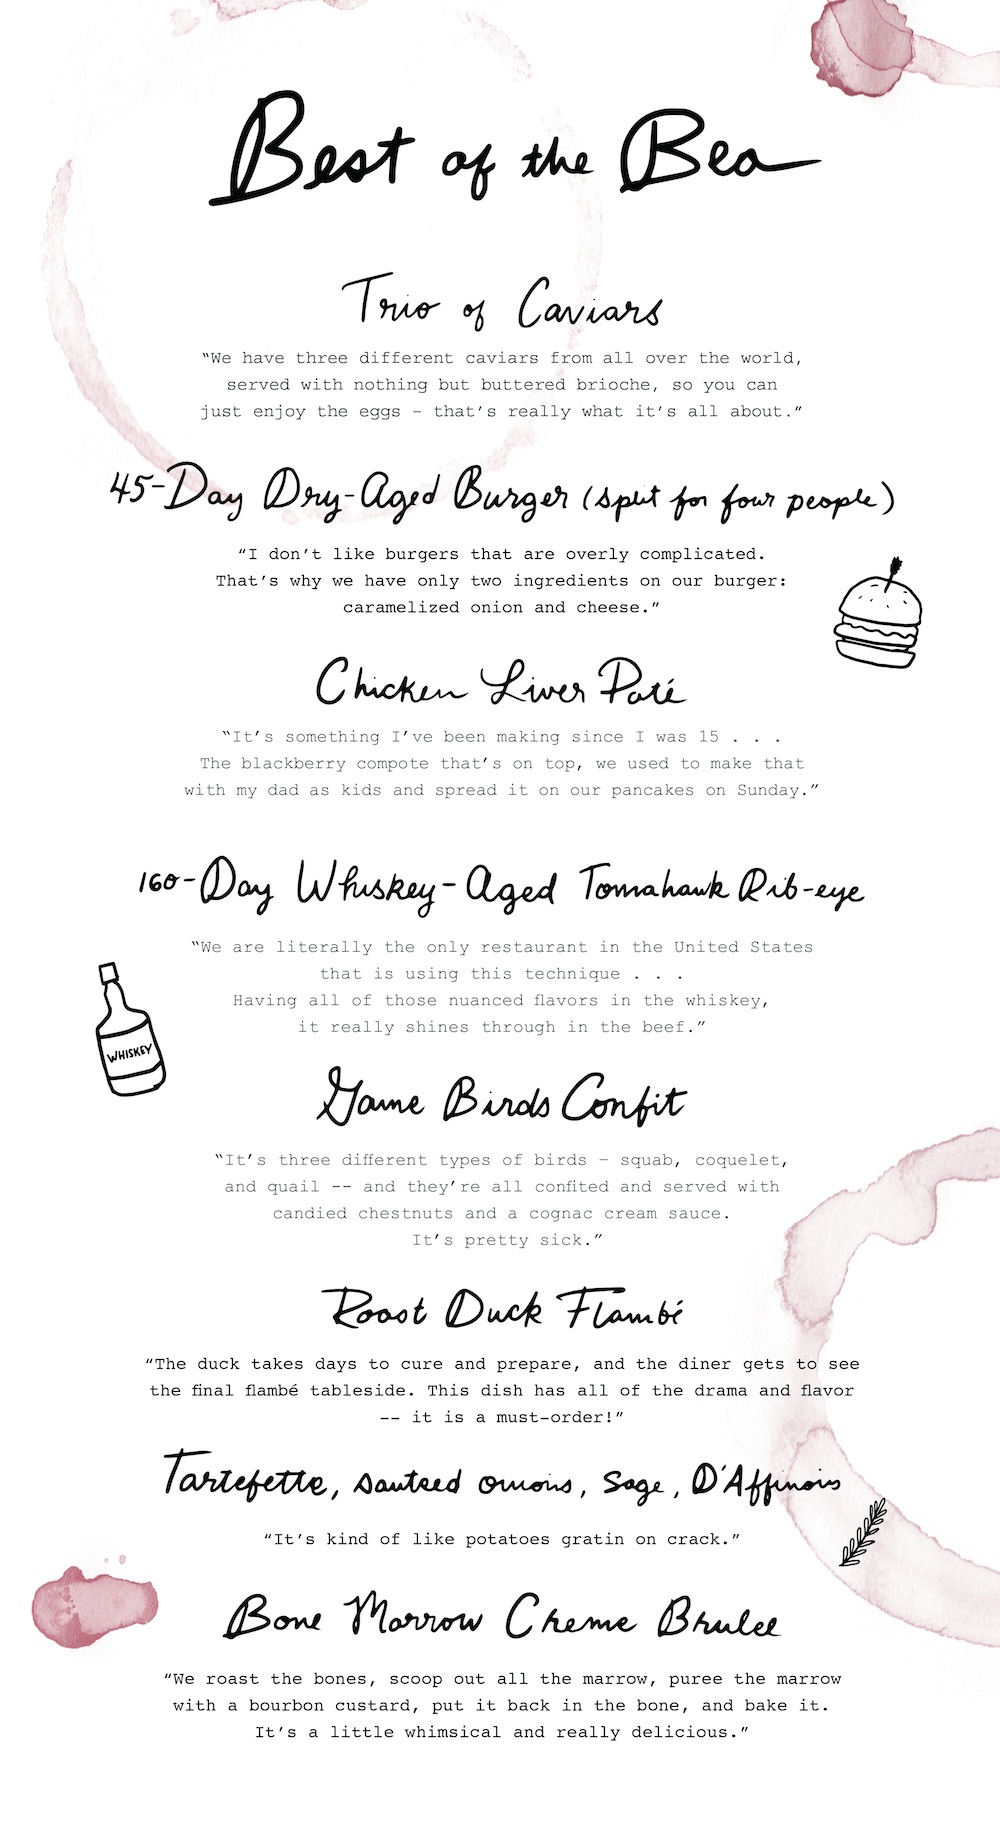 Best of the Bea
Trio of Caviars
“We have three different caviars from all over the world,
served with nothing but buttered brioche, so you can
just enjoy the eggs – that’s really what it’s all about.”
45-Day Dry-Aged Burger (split for four people)
“I don’t like burgers that are overly complicated.
That’s why we have only two ingredients on our burger:
caramelized onion and cheese.”
Chicken Liver Paté
“It’s something I’ve been making since I was 15 . . .
The blackberry compote that’s on top, we used to make that
with my dad as kids and spread it on our pancakes on Sunday.”
160-Day Whiskey-Aged Tomahawk Rib-eye
“We are literally the only restaurant in the United States
that is using this technique . . .
Having all of those nuanced flavors in the whiskey,
it really shines through in the beef.”
WHISKEY
Game Birds Confit
“It’s three different types of birds – squab, coquelet,
and quail -- and they’re all confited and served with
candied chestnuts and a cognac cream sauce.
It’s pretty sick.”
Roast Duck Flambé
“The duck takes days to cure and prepare, and the diner gets to see
the final flambé tableside. This dish has all of the drama and flavor
-- it is a must-order!”
Tartefette, sauteed onions, Sage, D'Affinois
“It’s kind of like potatoes gratin on crack.”
Bone Marrow Creme Brulee
“We roast the bones, scoop out all the marrow, puree the marrow
with a bourbon custard, put it back in the bone, and bake it.
It’s a little whimsical and really delicious.”